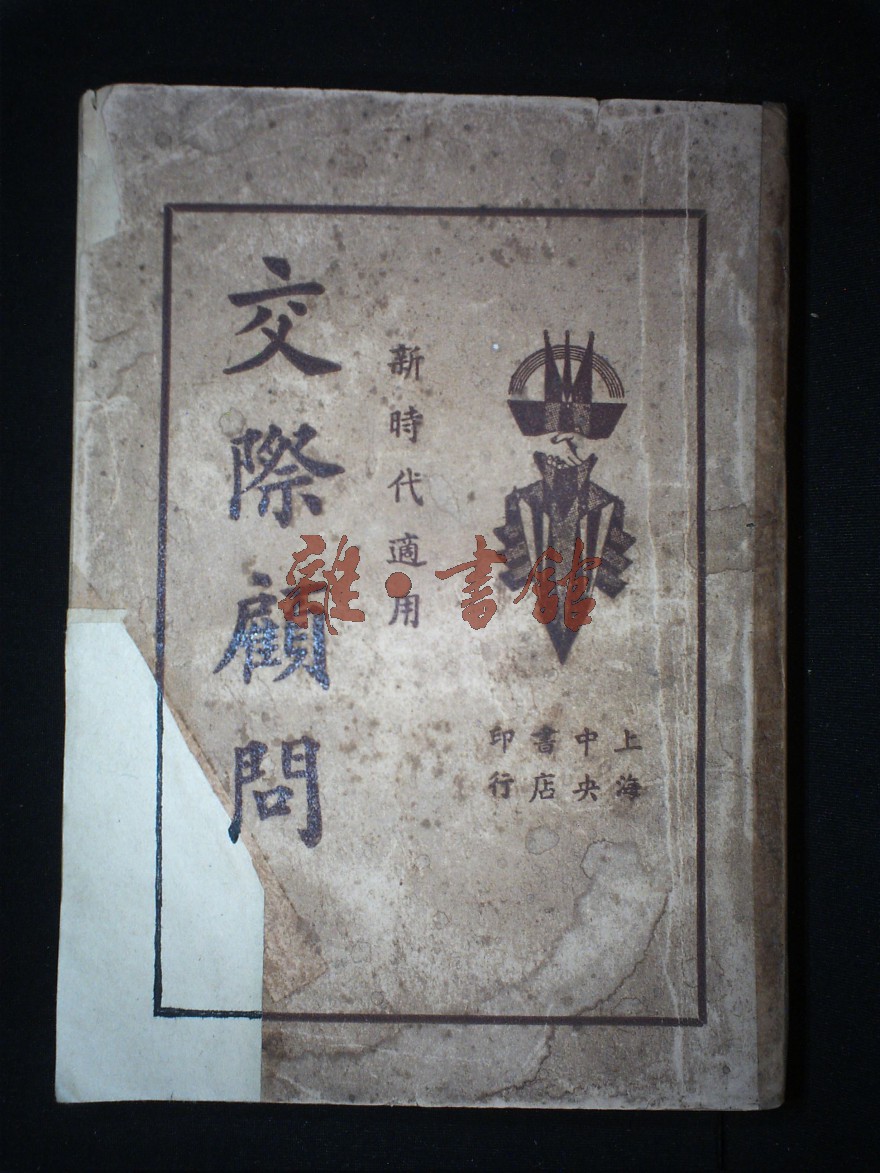 上海
中央
書店
印行
新時代適用
交際顧問
雜·書館